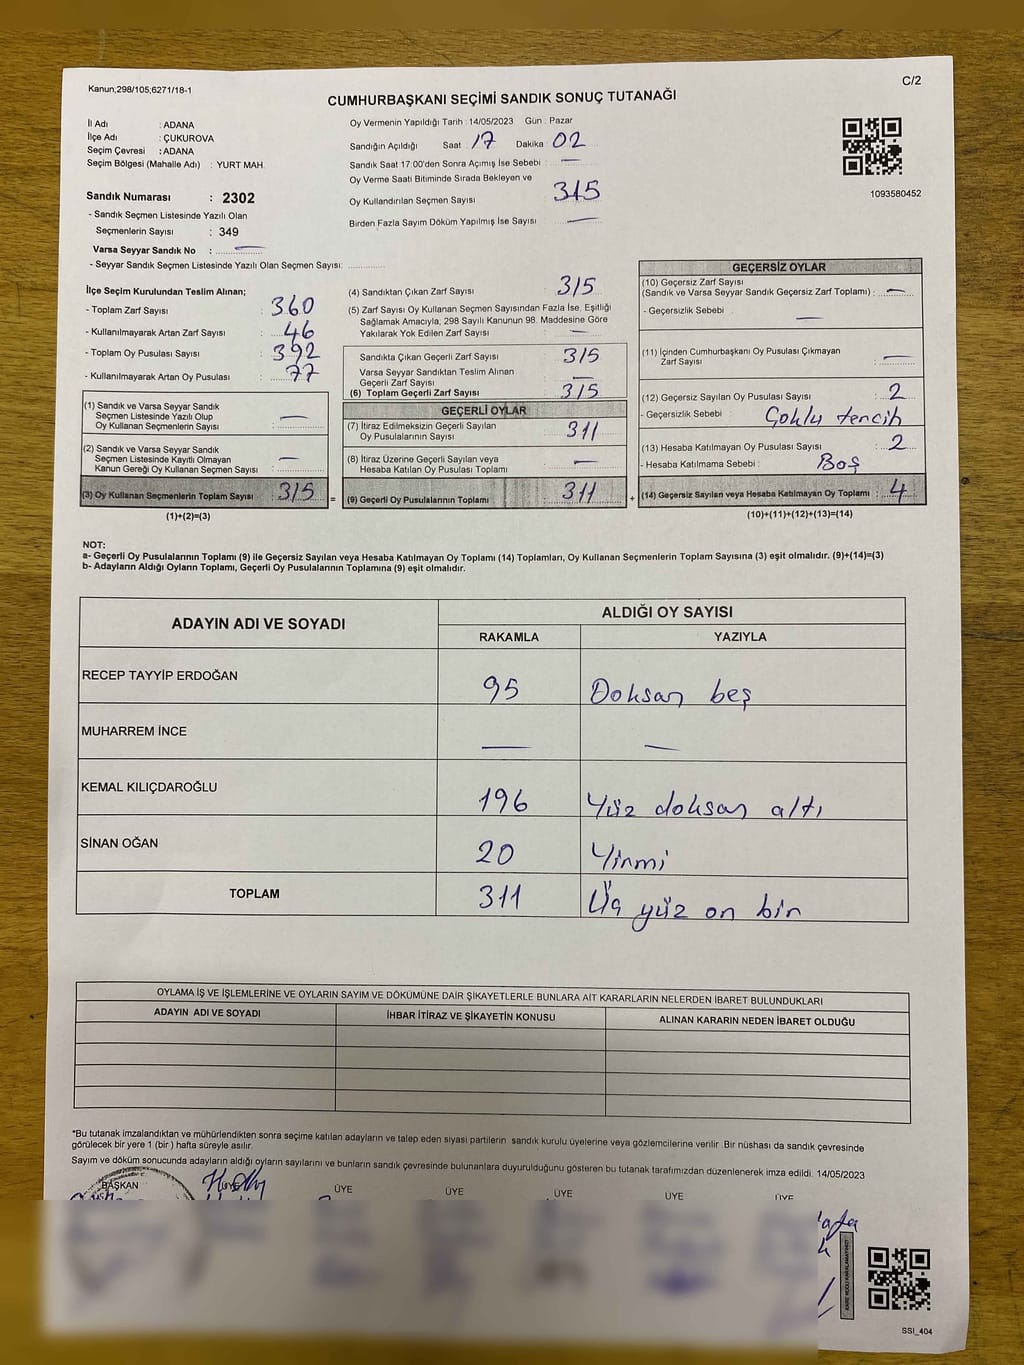 Kanun;298/105;6271/18-1
C/2
CUMHURBAŞKANI SEÇİMİ SANDIK SONUÇ TUTANAĞI
İl Adı : ADANA
İlçe Adı : ÇUKUROVA
Seçim Çevresi : ADANA
Seçim Bölgesi (Mahalle Adı) : YURT MAH.
Sandık Numarası : 2302
- Sandık Seçmen Listesinde Yazılı Olan
Seçmenlerin Sayısı : 349
Varsa Seyyar Sandık No : —
- Seyyar Sandık Seçmen Listesinde Yazılı Olan Seçmen Sayısı:
Oy Vermenin Yapıldığı Tarih : 14/05/2023 Gün : Pazar
Sandığın Açıldığı Saat : 17 Dakika : 02
Sandık Saat 17:00'den Sonra Açımış İse Sebebi : —
Oy Verme Saati Bitiminde Sırada Bekleyen ve
Oy Kullandırılan Seçmen Sayısı 315
Birden Fazla Sayım Döküm Yapılmış İse Sayısı —
1093580452
İlçe Seçim Kurulundan Teslim Alınan;
- Toplam Zarf Sayısı : 360
- Kullanılmayarak Artan Zarf Sayısı : 46
- Toplam Oy Pusulası Sayısı : 392
- Kullanılmayarak Artan Oy Pusulası : 77
(1) Sandık ve Varsa Seyyar Sandık
Seçmen Listesinde Yazılı Olup
Oy Kullanan Seçmenlerin Sayısı : —
(2) Sandık ve Varsa Seyyar Sandık
Seçmen Listesinde Kayıtlı Olmayan
Kanun Gereği Oy Kullanan Seçmen Sayısı : —
(3) Oy Kullanan Seçmenlerin Toplam Sayısı : 315 =
(1)+(2)=(3)
(4) Sandıktan Çıkan Zarf Sayısı : 315
(5) Zarf Sayısı Oy Kullanan Seçmen Sayısından Fazla İse, Eşitliği
Sağlamak Amacıyla, 298 Sayılı Kanunun 98. Maddesine Göre
Yakılarak Yok Edilen Zarf Sayısı : —
Sandıkta Çıkan Geçerli Zarf Sayısı : 315
Varsa Seyyar Sandıktan Teslim Alınan
Geçerli Zarf Sayısı : —
(6) Toplam Geçerli Zarf Sayısı : 315
GEÇERLİ OYLAR
(7) İtiraz Edilmeksizin Geçerli Sayılan
Oy Pusulalarının Sayısı : 311
(8) İtiraz Üzerine Geçerli Sayılan veya
Hesaba Katılan Oy Pusulası Toplamı : —
(9) Geçerli Oy Pusulalarının Toplamı : 311 +
GEÇERSİZ OYLAR
(10) Geçersiz Zarf Sayısı
(Sandık ve Varsa Seyyar Sandık Geçersiz Zarf Toplamı) : —
- Geçersizlik Sebebi : —
(11) İçinden Cumhurbaşkanı Oy Pusulası Çıkmayan
Zarf Sayısı : —
(12) Geçersiz Sayılan Oy Pusulası Sayısı : 2
- Geçersizlik Sebebi : Çoklu tercih
(13) Hesaba Katılmayan Oy Pusulası Sayısı : 2
- Hesaba Katılmama Sebebi : Boş
(14) Geçersiz Sayılan veya Hesaba Katılmayan Oy Toplamı : 4
(10)+(11)+(12)+(13)=(14)
NOT:
a- Geçerli Oy Pusulalarının Toplamı (9) ile Geçersiz Sayılan veya Hesaba Katılmayan Oy Toplamı (14) Toplamları, Oy Kullanan Seçmenlerin Toplam Sayısına (3) eşit olmalıdır. (9)+(14)=(3)
b- Adayların Aldığı Oyların Toplamı, Geçerli Oy Pusulalarının Toplamına (9) eşit olmalıdır.
ADAYIN ADI VE SOYADI
ALDIĞI OY SAYISI
RAKAMLA YAZIYLA
RECEP TAYYİP ERDOĞAN 95 Doksan beş
MUHARREM İNCE — —
KEMAL KILIÇDAROĞLU 196 Yüz doksan altı
SİNAN OĞAN 20 Yirmi
TOPLAM 311 Üç yüz on bin
OYLAMA İŞ VE İŞLEMLERİNE VE OYLARIN SAYIM VE DÖKÜMÜNE DAİR ŞİKAYETLERLE BUNLARA AİT KARARLARIN NELERDEN İBARET BULUNDUKLARI
ADAYIN ADI VE SOYADI İHBAR İTİRAZ VE ŞİKAYETİN KONUSU ALINAN KARARIN NEDEN İBARET OLDUĞU
*Bu tutanak imzalandıktan ve mühürlendikten sonra seçime katılan adayların ve talep eden siyasi partilerin sandık kurulu üyelerine veya gözlemcilerine verilir. Bir nüshası da sandık çevresinde
görülecek bir yere 1 (bir ) hafta süreyle asılır.
Sayım ve döküm sonucunda adayların aldığı oyların sayılarını ve bunların sandık çevresinde bulunanlara duyurulduğunu gösteren bu tutanak tarafımızdan düzenlenerek imza edildi. 14/05/2023
BAŞKAN ÜYE ÜYE ÜYE ÜYE ÜYE ÜYE
KARE KODU KARALAMAYINIZ!
SSI_404